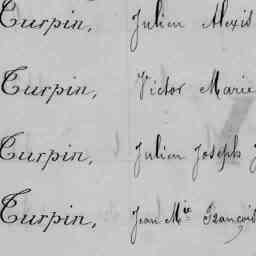 Turpin, Julien Alexis
Turpin, Victor Marie
Turpin, Julien Joseph J
Turpin, Jean Mie François